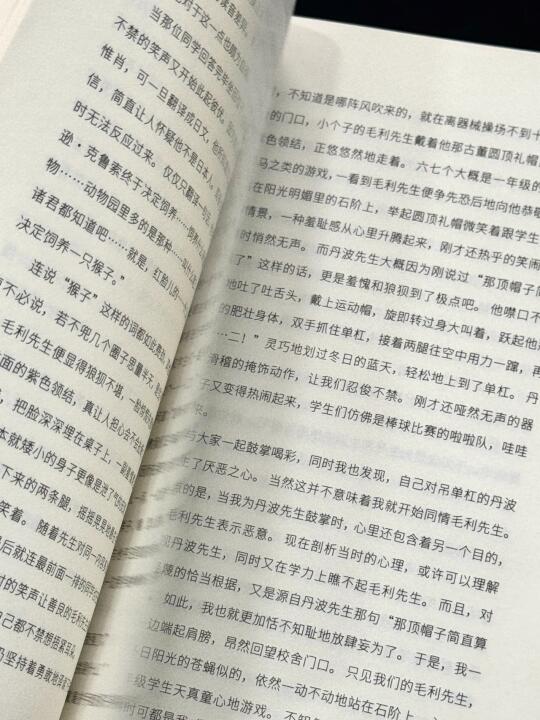 对于这一点也颇为
当那位同学回答完毕坐
不禁的笑声又开始此起彼伏。
惟肖，可一旦翻译成日文，他
信，简直让人怀疑他不是日本人
时无法反应过来。仅仅只翻译一句
逊·克鲁索终于决定饲养……饲养
物……动物园里多的是那种……叫什么
诸君都知道吧……就是，红脸儿的
决定饲养一只猴子。”
连说“猴子”这样的词都如此费劲，
不必说，若不兜几个圈子思量半天，
毛利先生便显得狼狈不堪，
面的紫色领结，真让人担心会不会
，把脸深深埋在桌子上，一副
本就矮小的身子更像是泄了气的
下来的两条腿，摇摇晃晃地
笑着。随着先生对同一内容
后就连最前面一排的同学
时的笑声让善良的毛利先
自己都不禁想捂紧耳朵。
坚持着勇敢地译
，不知道是哪阵风吹来的，就在离器械操场不到十
的门口，小个子的毛利先生戴着他那古董圆顶礼帽
色领结，正悠悠然地走着。六七个大概是一年级的
马之类的游戏，一看到毛利先生便争先恐后地向他恭敬
在阳光明媚里的石阶上，举起圆顶礼帽微笑着跟学生
情景，一种羞耻感从心里升腾起来，刚才还热乎的笑闹
时悄然无声。而丹波先生大概因为刚说过“那顶帽子简
了”这样的话，更是羞愧和狼狈到了极点吧。他噤口不
地吐了吐舌头，戴上运动帽，旋即转过身大叫着，跃起他
的肥壮身体，双手抓住单杠，接着两腿往空中用力一蹿，再
…二！”灵巧地划过冬日的蓝天，轻松地上到了单杠。丹
滑稽的掩饰动作，让我们忍俊不禁。刚才还哑然无声的器
子又变得热闹起来，学生们仿佛是棒球比赛的啦啦队，哇哇
与大家一起鼓掌喝彩，同时我也发现，自己对吊单杠的丹波
生了厌恶之心。当然这并不意味着我就开始同情毛利先生。
的是，当我为丹波先生鼓掌时，心里还包含着另一个目的，
毛利先生表示恶意。现在剖析当时的心理，或许可以理解
丹波先生，同时又在学力上瞧不起毛利先生。而且，对
蔑的恰当根据，又是源自丹波先生那句“那顶帽子简直算
如此，我也就更加恬不知耻地放肆妄为了。于是，我一
边端起肩膀，昂然回望校舍门口。只见我们的毛利先生，
日阳光的苍蝇似的，依然一动不动地站在石阶上，
级学生天真童心地游戏。不知
时可都是我